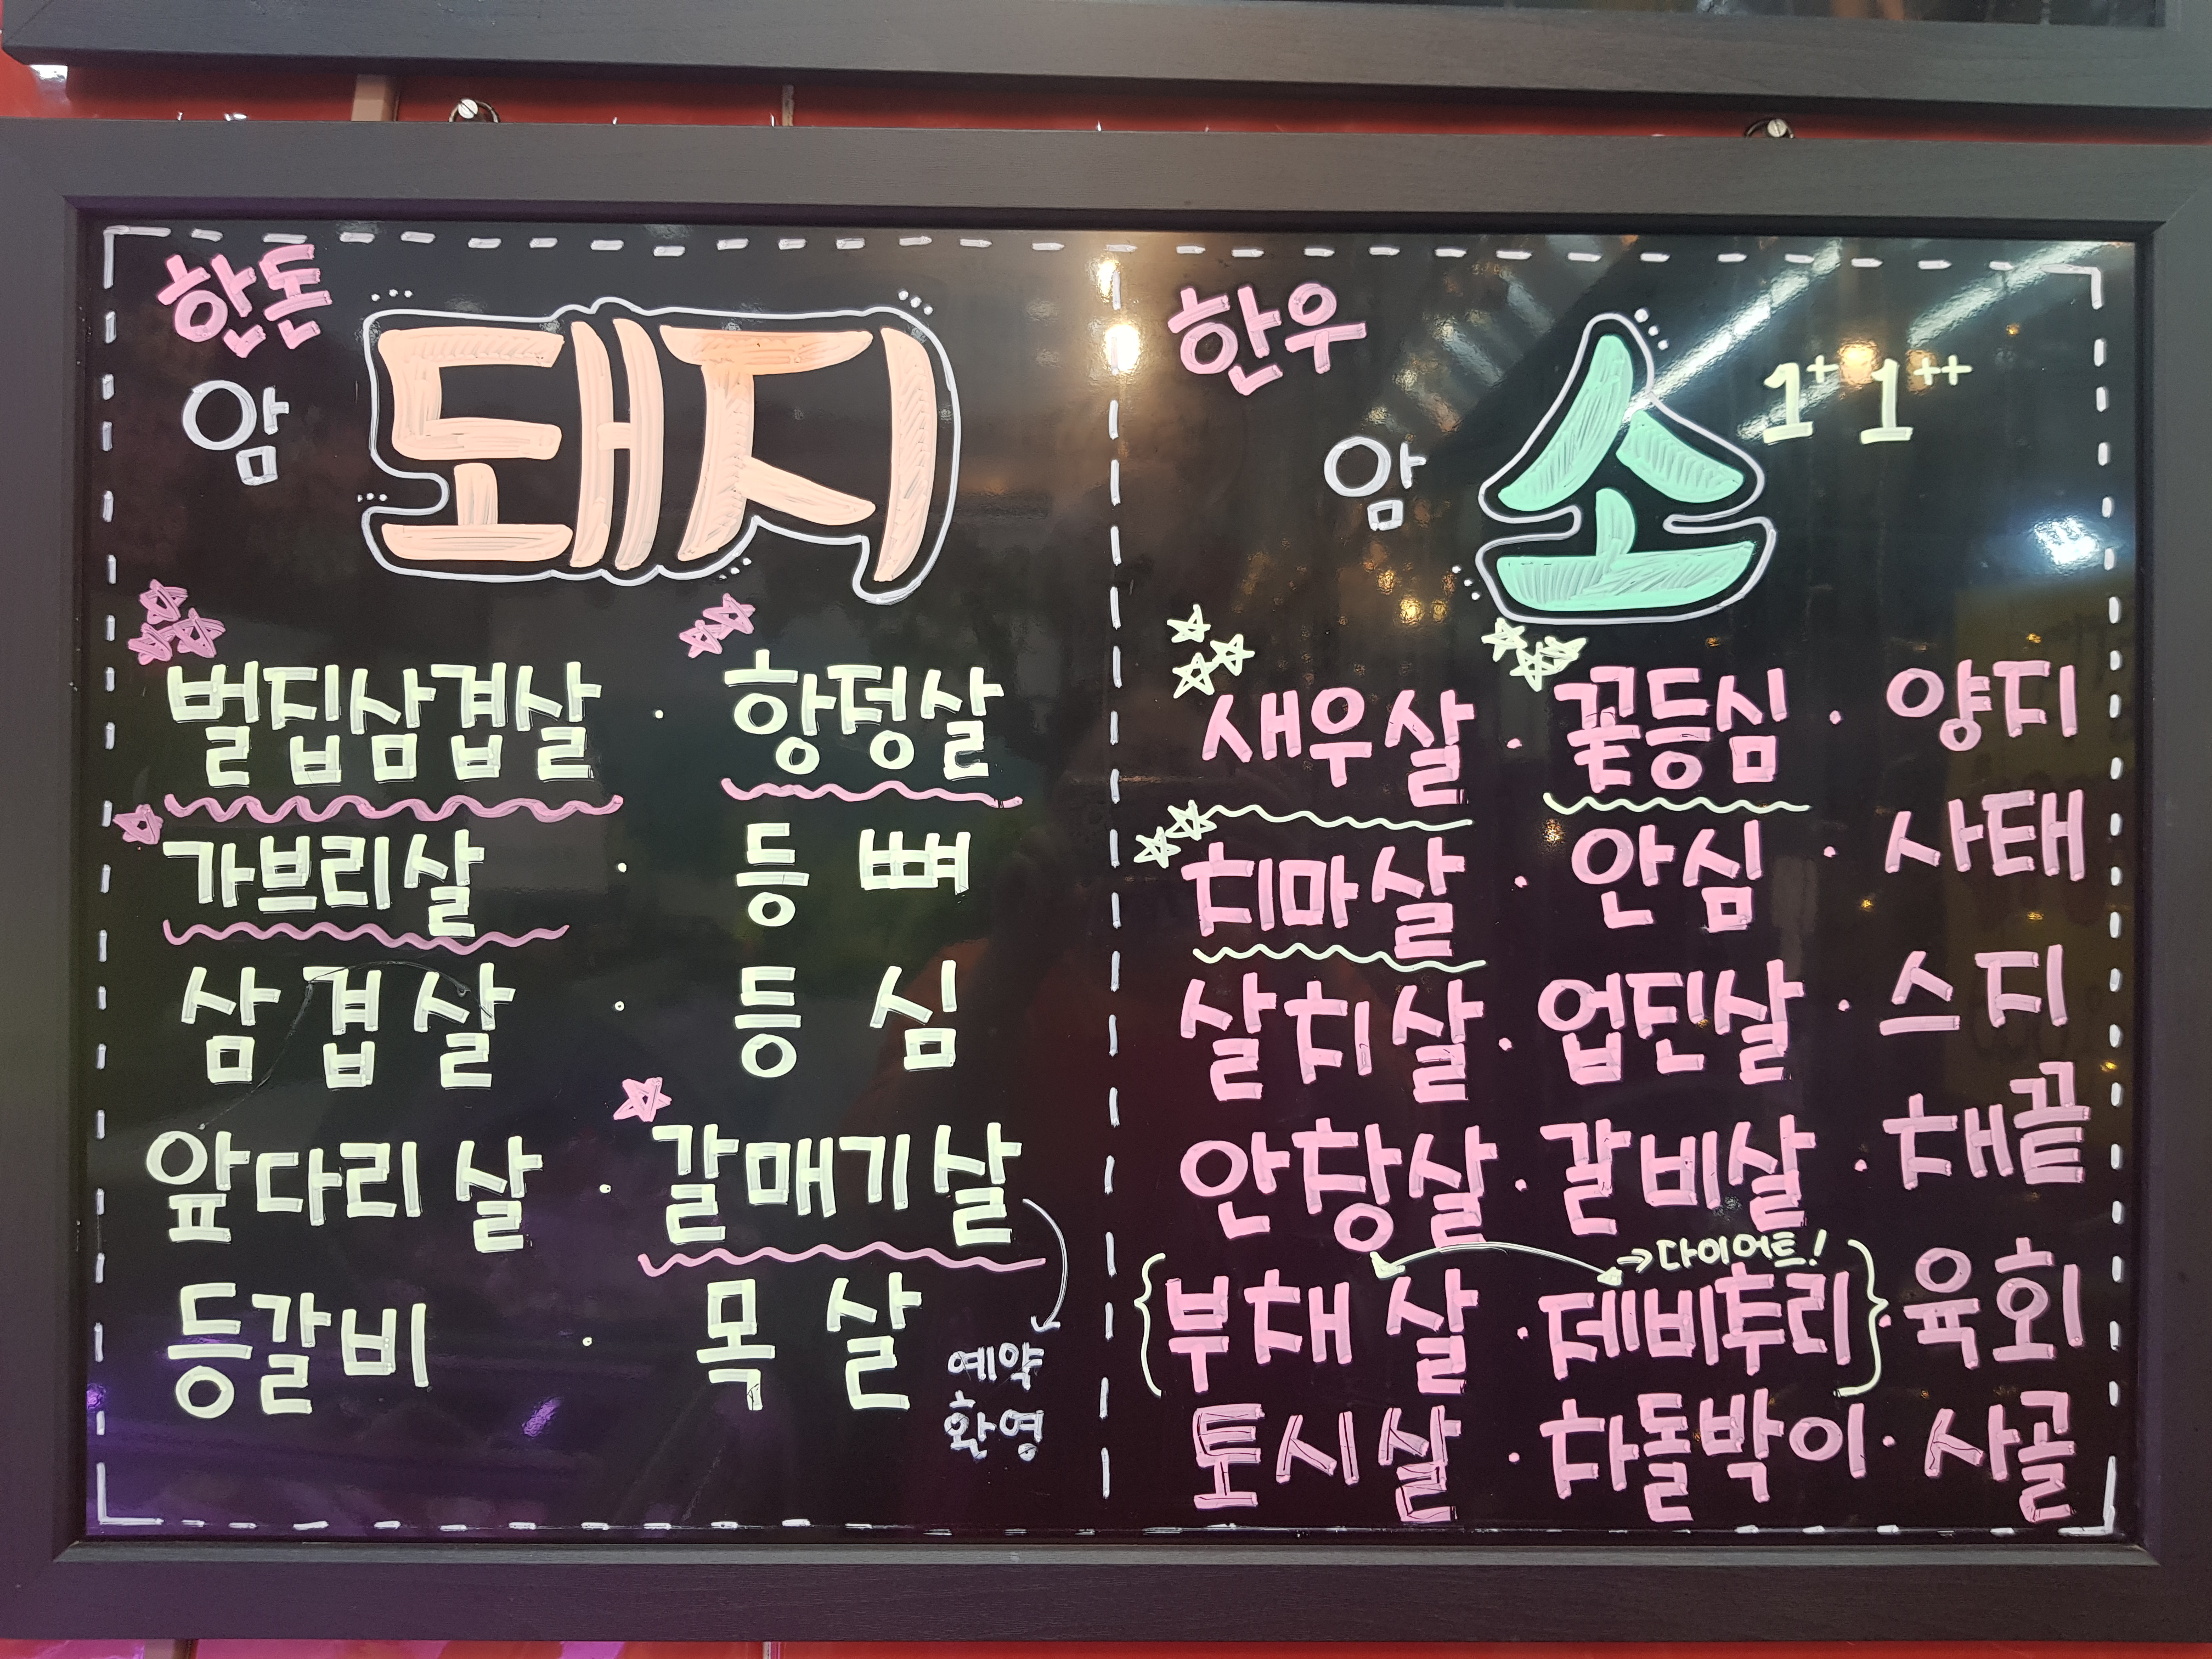 한돈
암 돼지
벌집삼겹살 · 항정살
가브리살 · 등뼈
삼겹살 · 등심
앞다리살 · 갈매기살
등갈비 · 목살
예약
환영
한우
암 소 1+ 1++
새우살 · 꽃등심 · 양지
치마살 · 안심 · 사태
살치살 · 업진살 · 스지
안창살 · 갈비살 · 채끝
→다이어트!
{부채살 · 제비추리} · 육회
토시살 · 차돌박이 · 사골